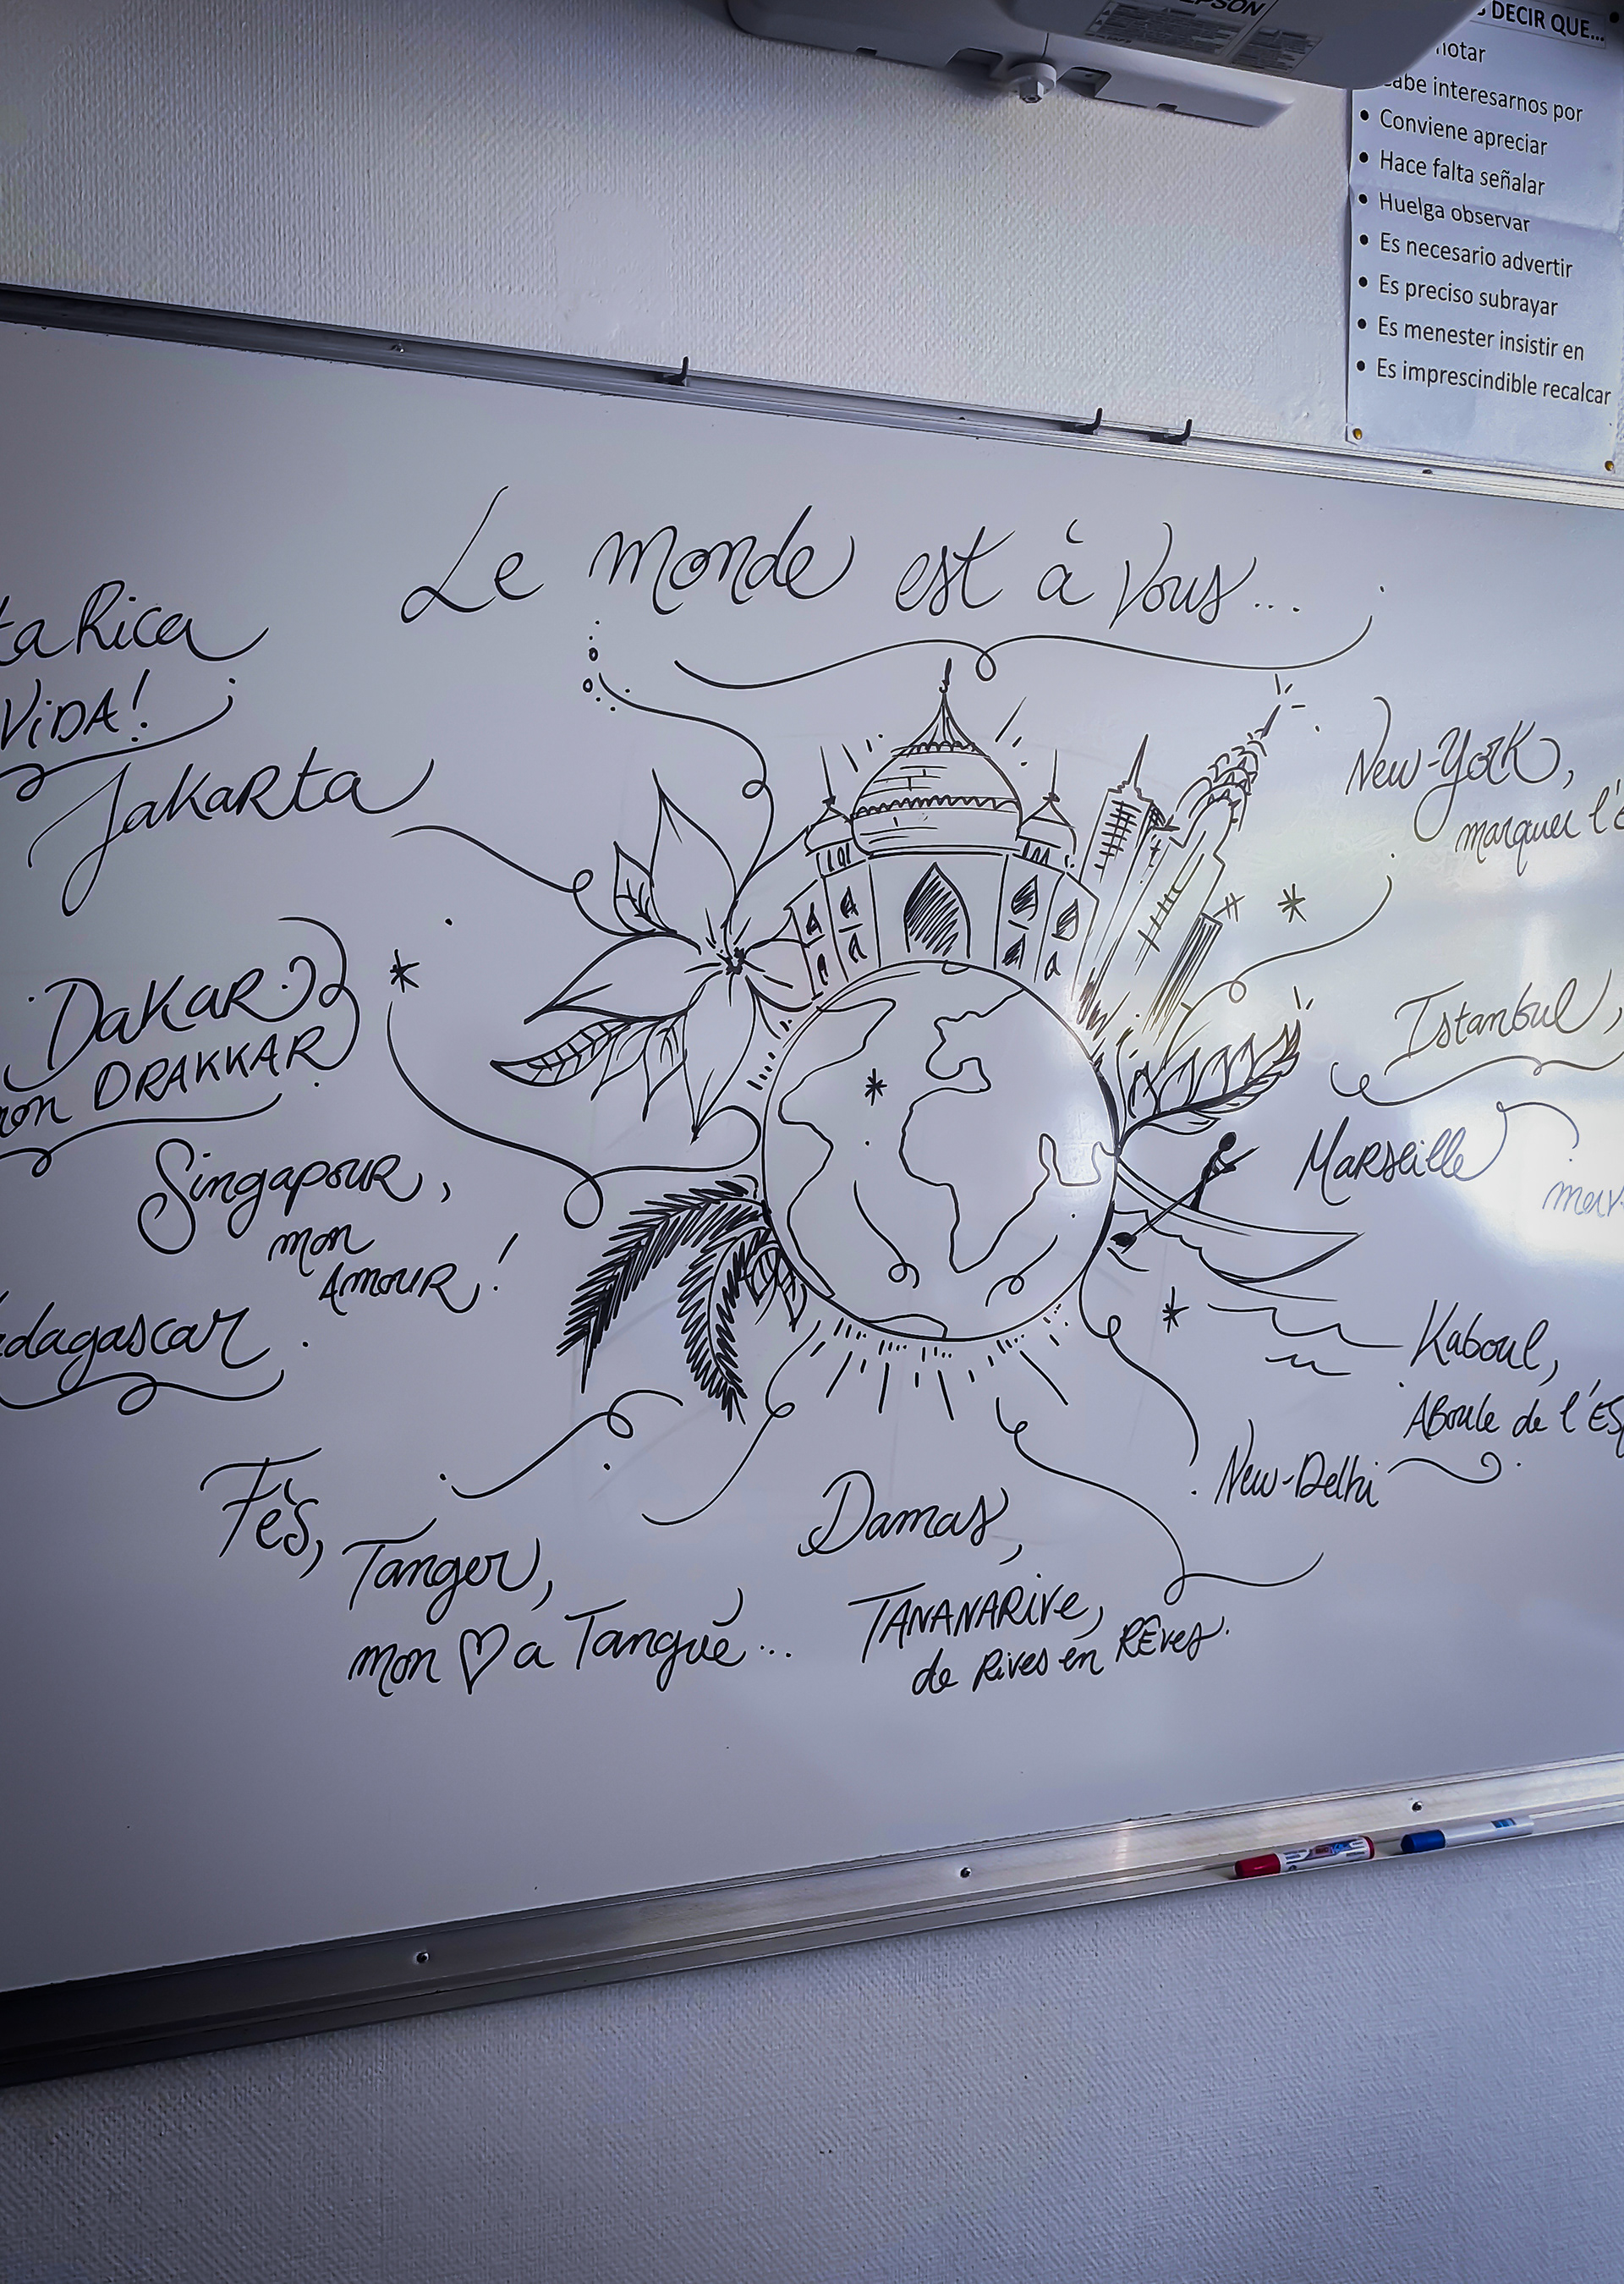 EPSON
DECIR QUE...
notar
cabe interesarnos por
• Conviene apreciar
• Hace falta señalar
• Huelga observar
• Es necesario advertir
• Es preciso subrayar
• Es menester insistir en
• Es imprescindible recalcar
Le monde est à vous...
ta Rica
ViDA!
JaKaRta
DaKaR
mon DRAKKAR
SingapouR,
mon
AmouR!
dagascar
Fès,
Tanger,
mon ♡ a Tangué...
Damas,
TANANARive,
de Rives en RÊves.
New-Delhi
Kaboul,
ABoule de l'ES
MaRseille
Istanbul,
New-YoRK,
marquer l'É